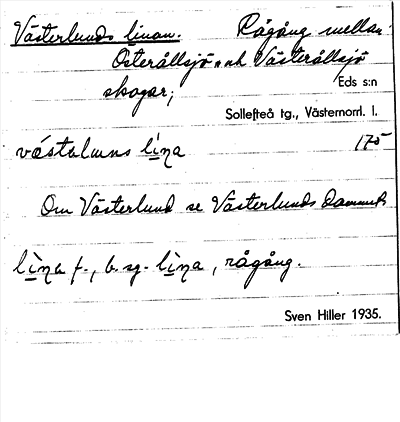 Västerlunds linan. Rågång mellan
Österållsjö och Västerållsjö
skogar;
Eds s:n
Sollefteå tg., Västernorrl. l.
västalums lina 175
Om Västerlund se Västerlunds dammet
lina f., b. sg. lina, rågång.
Sven Hiller 1935.